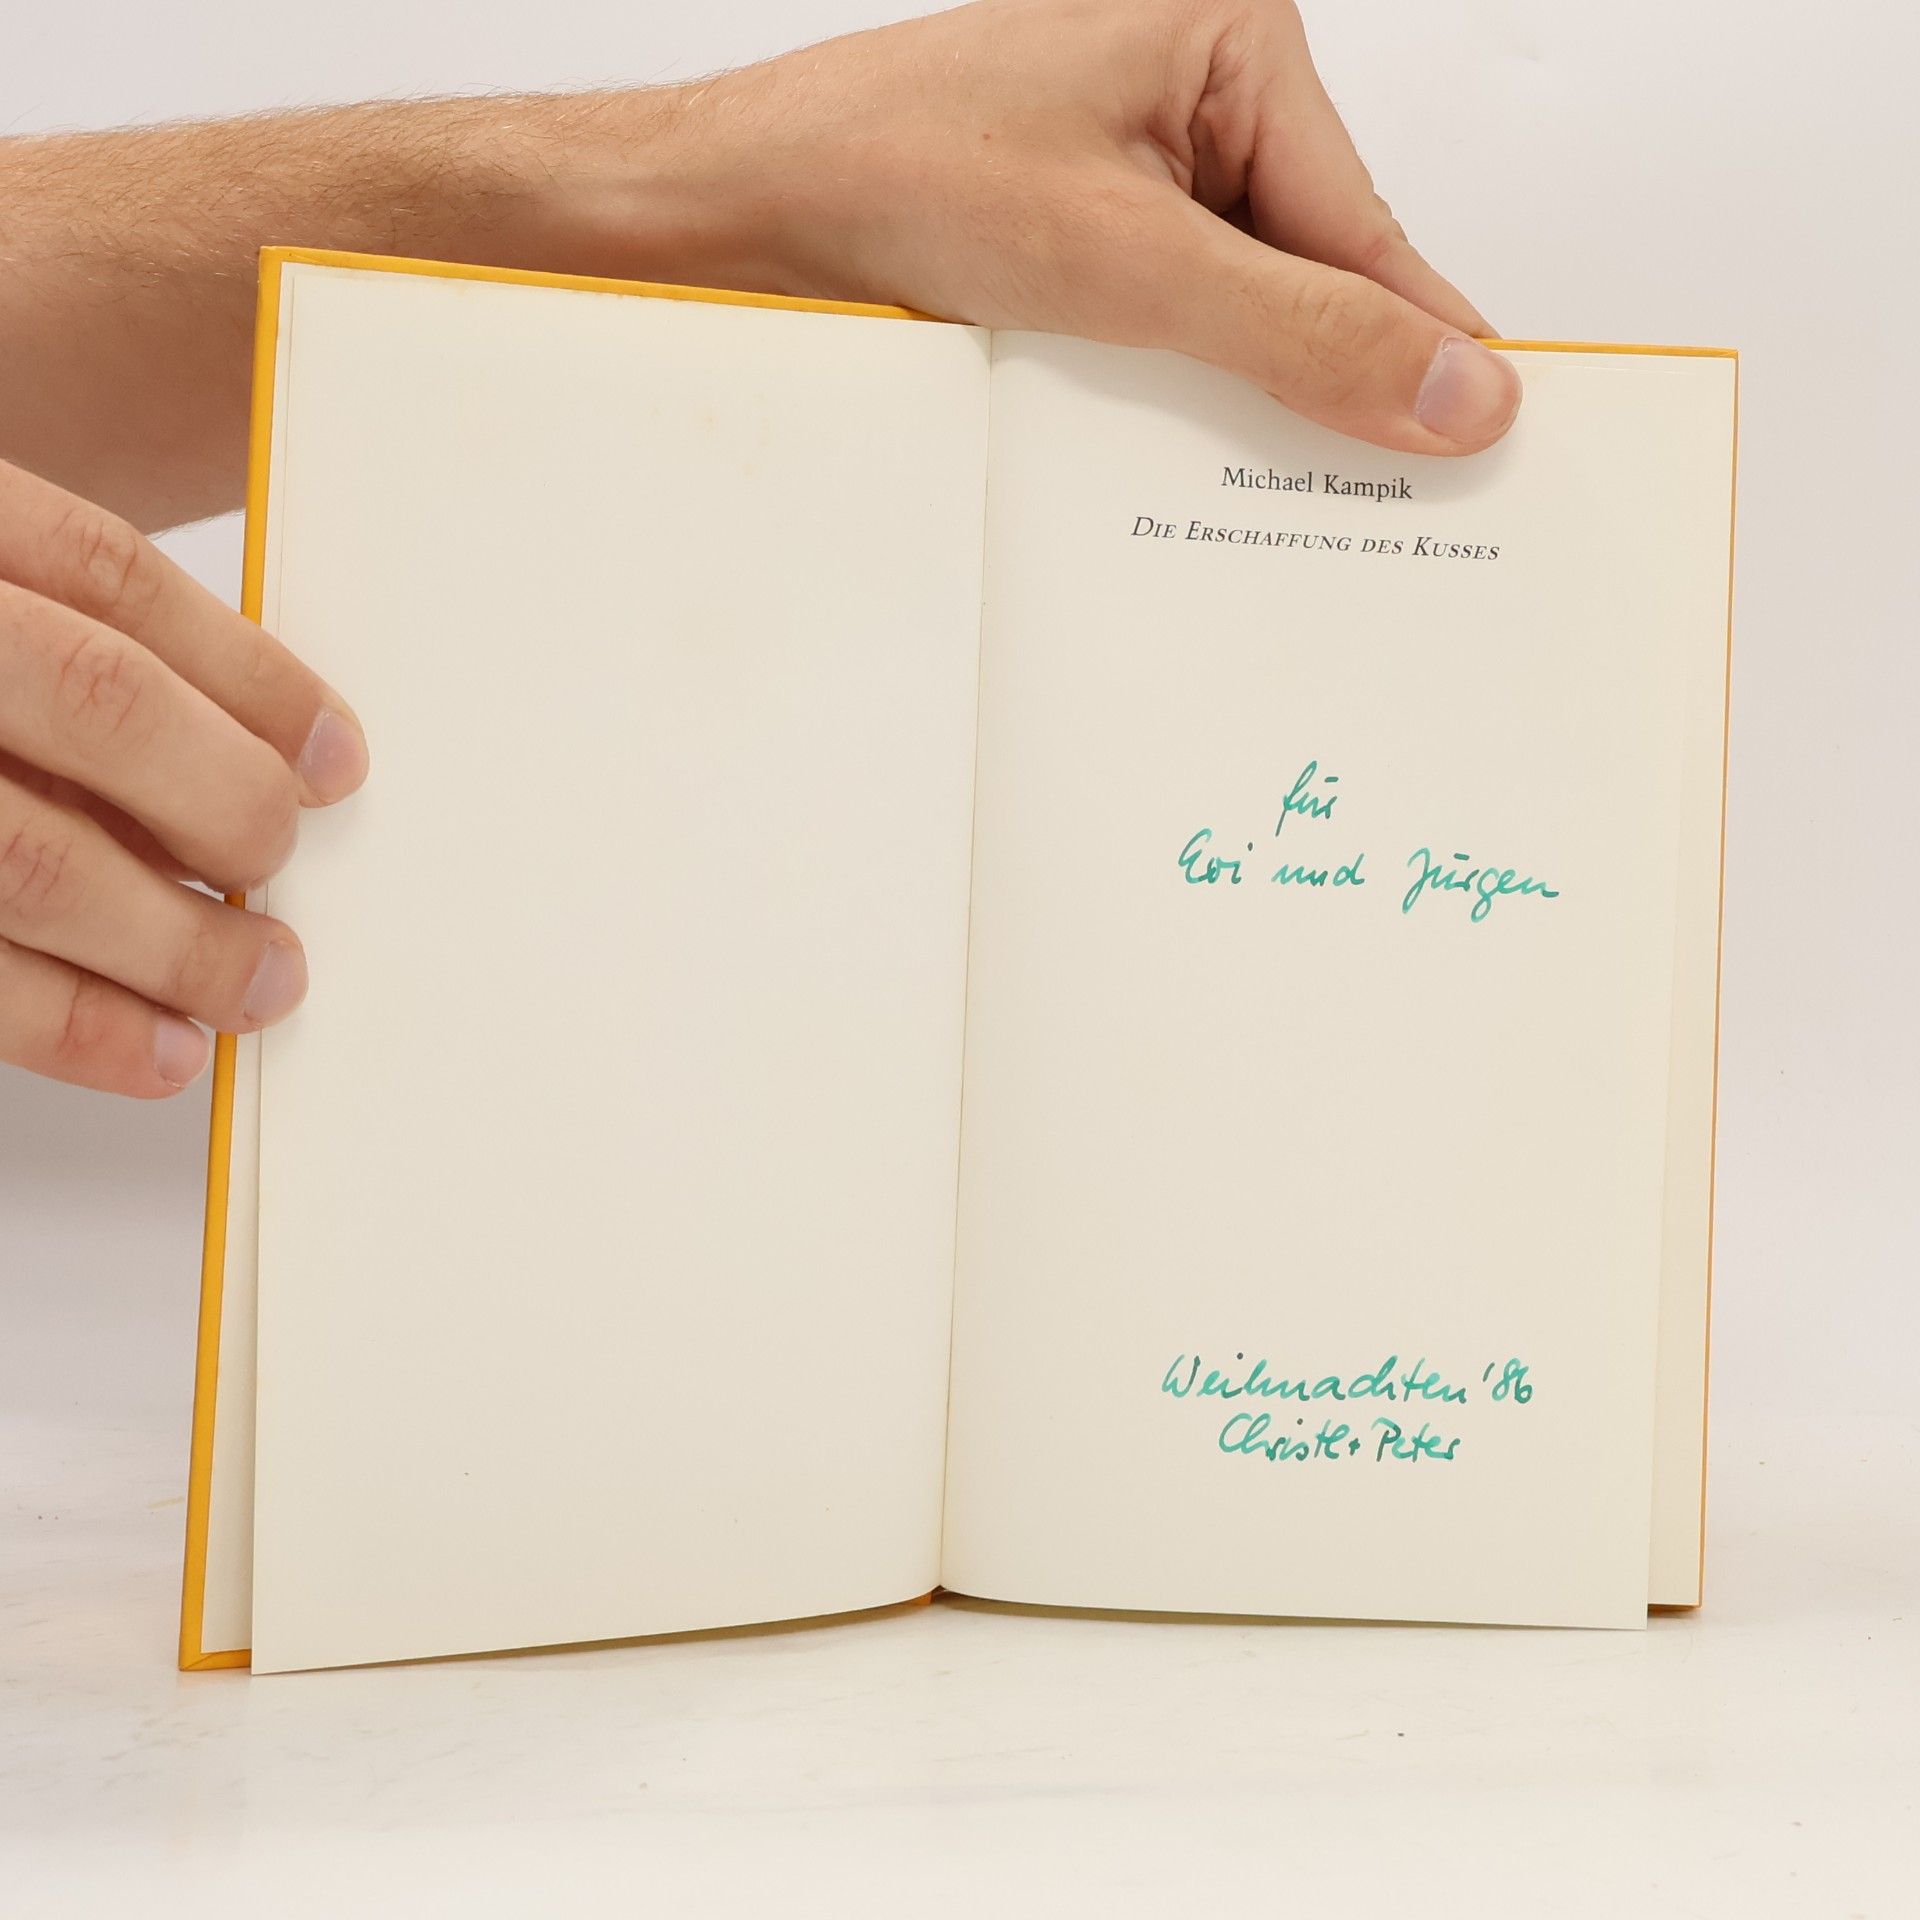 Michael Kampik
Die Erschaffung des Kusses
für
Evi und Jürgen
Weihnachten '86
Christl + Peter